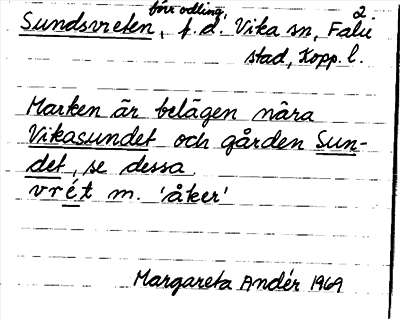 2.
förr odling,
Sundsvreten, f.d. Vika sn, Falu
stad, Kopp. l.
Marken är belägen nära
Vikasundet och gården Sun-
det, se dessa.
vrét m. 'åker'
Margareta Andér 1969